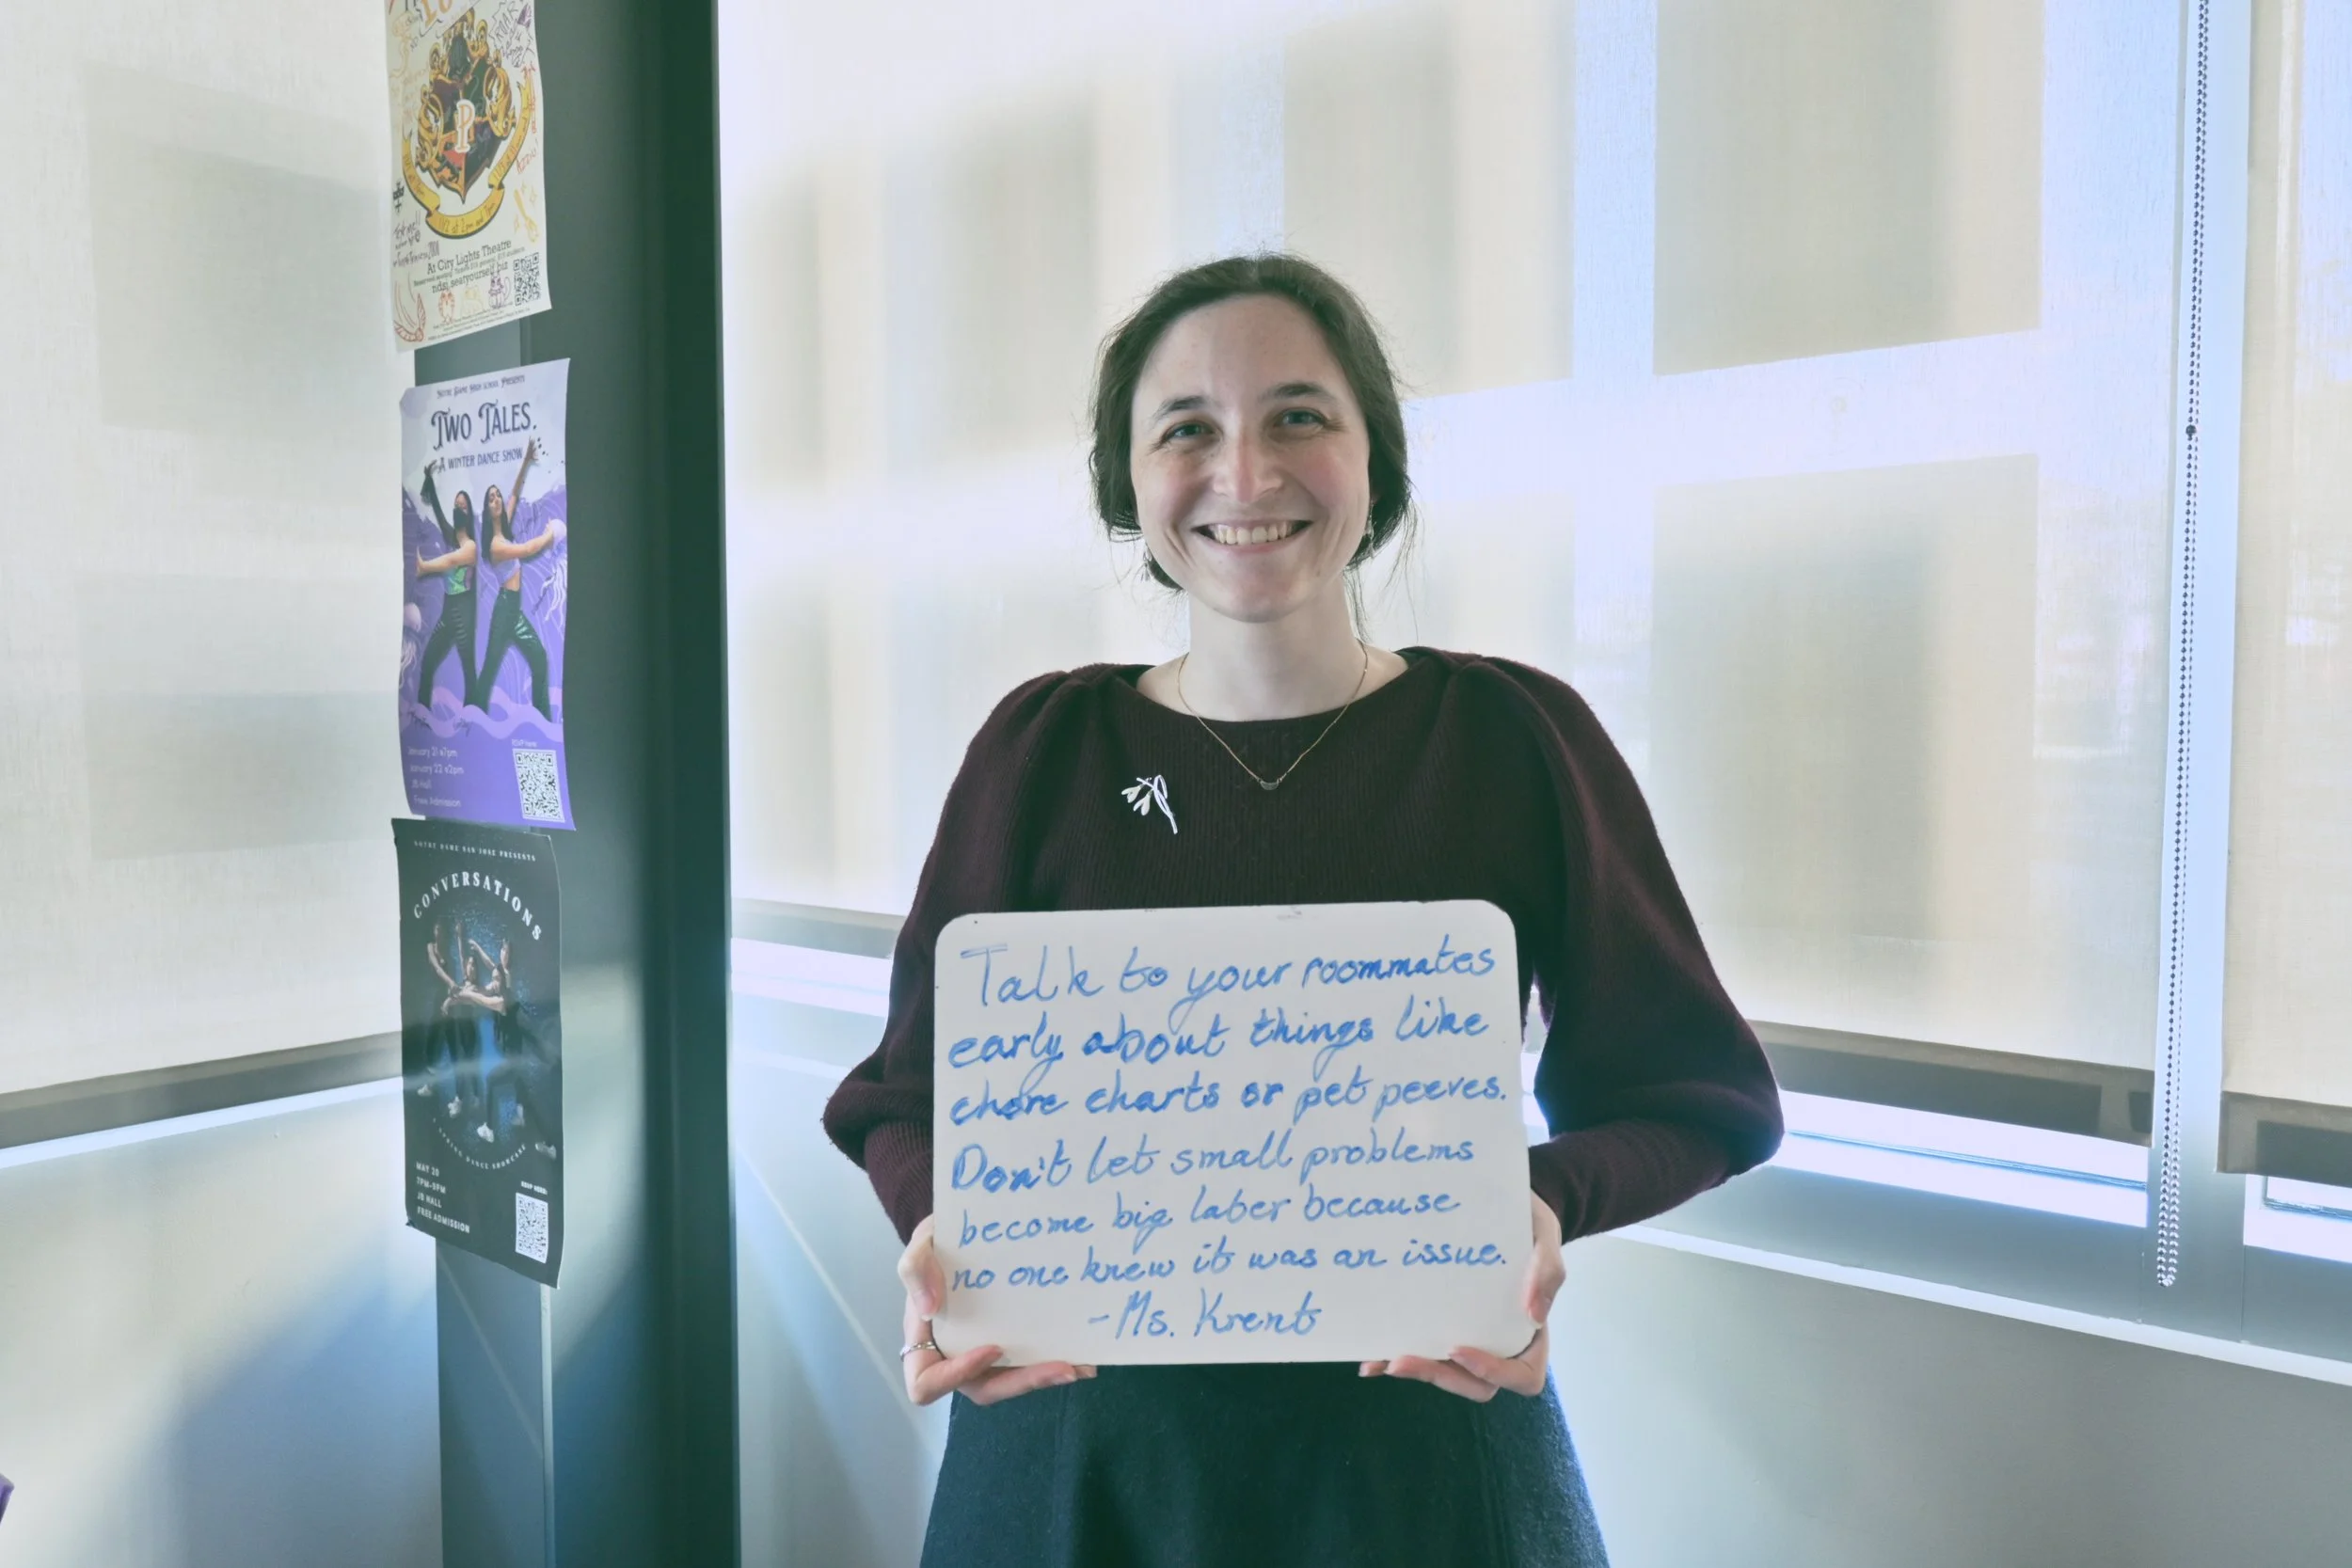 At City Lights Theatre
ndsj.seatyourself.biz
Notre Dame High School Presents
Two Tales.
A Winter Dance Show
January 21 @7pm
January 22 @2pm
JB Hall
Free Admission
RSVP here
NOTRE DAME SAN JOSE PRESENTS
CONVERSATIONS
SPRING DANCE SHOWCASE
MAY 20
7PM-9PM
JB HALL
FREE ADMISSION
RSVP HERE:
Talk to your roommates
early about things like
chore charts or pet peeves.
Don't let small problems
become big later because
no one knew it was an issue.
-Ms. Krent